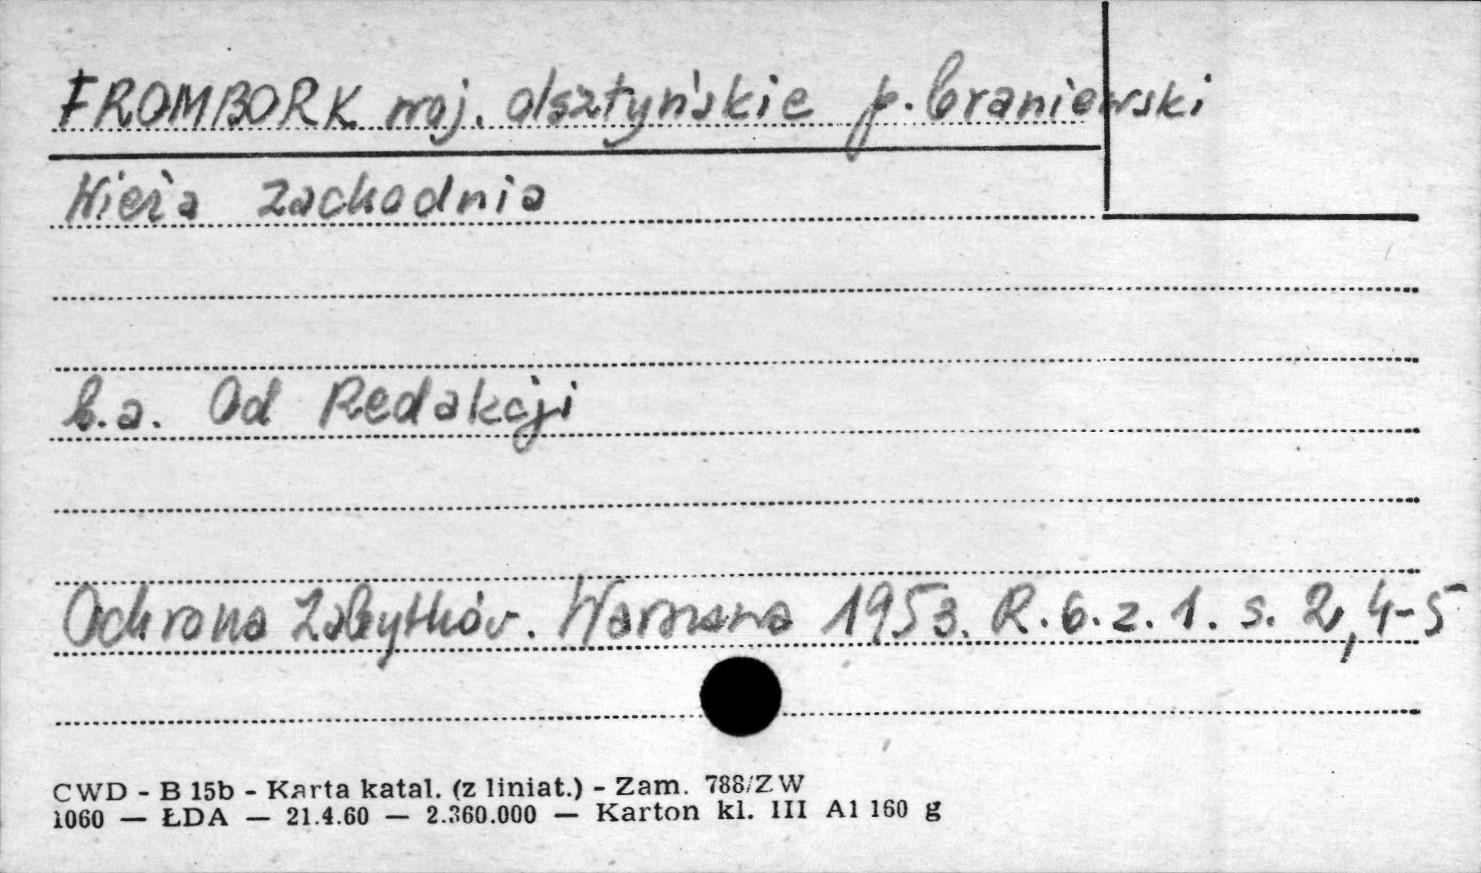 FROMBORK woj. olsztyńskie p. braniewski
Wieża zachodnia
b.a. Od Redakcji
Ochrona Zabytków. Warszawa 1953. R.6.z.1. s. 2, 4-5
CWD - B 15b - Karta katal. (z liniat.) - Zam. 788/ZW
1060 — ŁDA — 21.4.60 — 2.360.000 — Karton kl. III A1 160 g